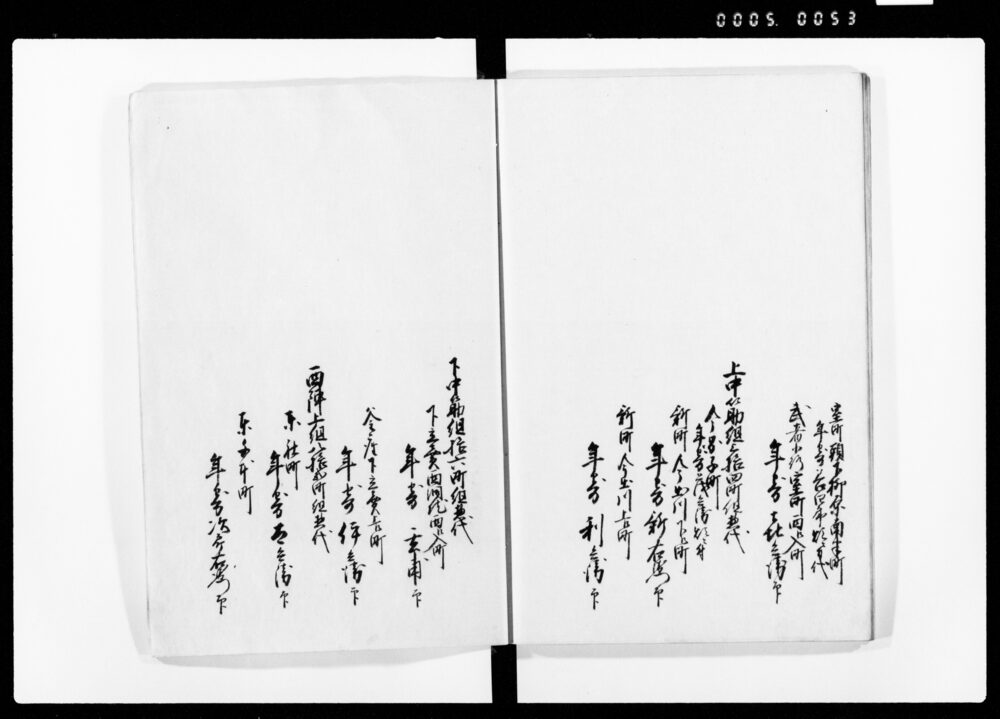 0005. 0053
室町頭下柳原南半町
武者小路室町西入町
年寄 喜兵衛 印
上中筋組六拾四町組惣代
年寄
新町今出川下ル町
年寄 新右衛門 印
新町今出川上ル町
年寄 利兵衛 印
下中筋組拾六町組惣代
下立売西洞院西入町
年寄 玄甫 印
釜座下立売上ル町
年寄 伊兵衛 印
西陣上組八拾町組惣代
東社町
年寄 兵衛 印
東千本町
年寄 次郎右衛門 印